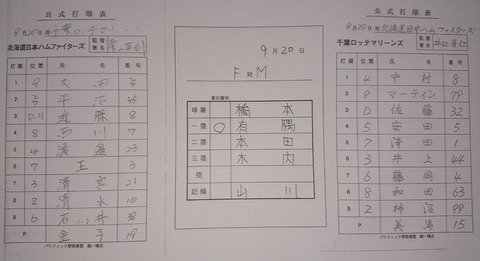 公式打順表
9月20日 対 千葉ロッテマリーンズ
北海道日本ハムファイターズ
監督署名
打順 位置 氏名 番号
1 9 大田 5
2 5 平沼 45
3 D 近藤 8
4 8 西川 7
5 4 渡邉 23
6 7 王 3
7 3 清宮 21
8 2 清水 10
9 6 石井 38
P 金子 19
パシフィック野球連盟 統一様式
9月20日
F対M
責任審判
球審 橋本
一塁 ○ 有隅
二塁 本田
三塁 木内
控
記録 山川
公式打順表
9月20日 対 北海道日本ハムファイターズ
千葉ロッテマリーンズ
監督署名 井口資仁
打順 位置 氏名 番号
1 4 中村 8
2 9 マーティン 79
3 D 佐藤 32
4 5 安田 5
5 7 清田 1
6 3 井上 44
7 6 藤岡 4
8 8 和田 63
9 2 柿沼 99
P 美馬 15
パシフィック野球連盟 統一様式